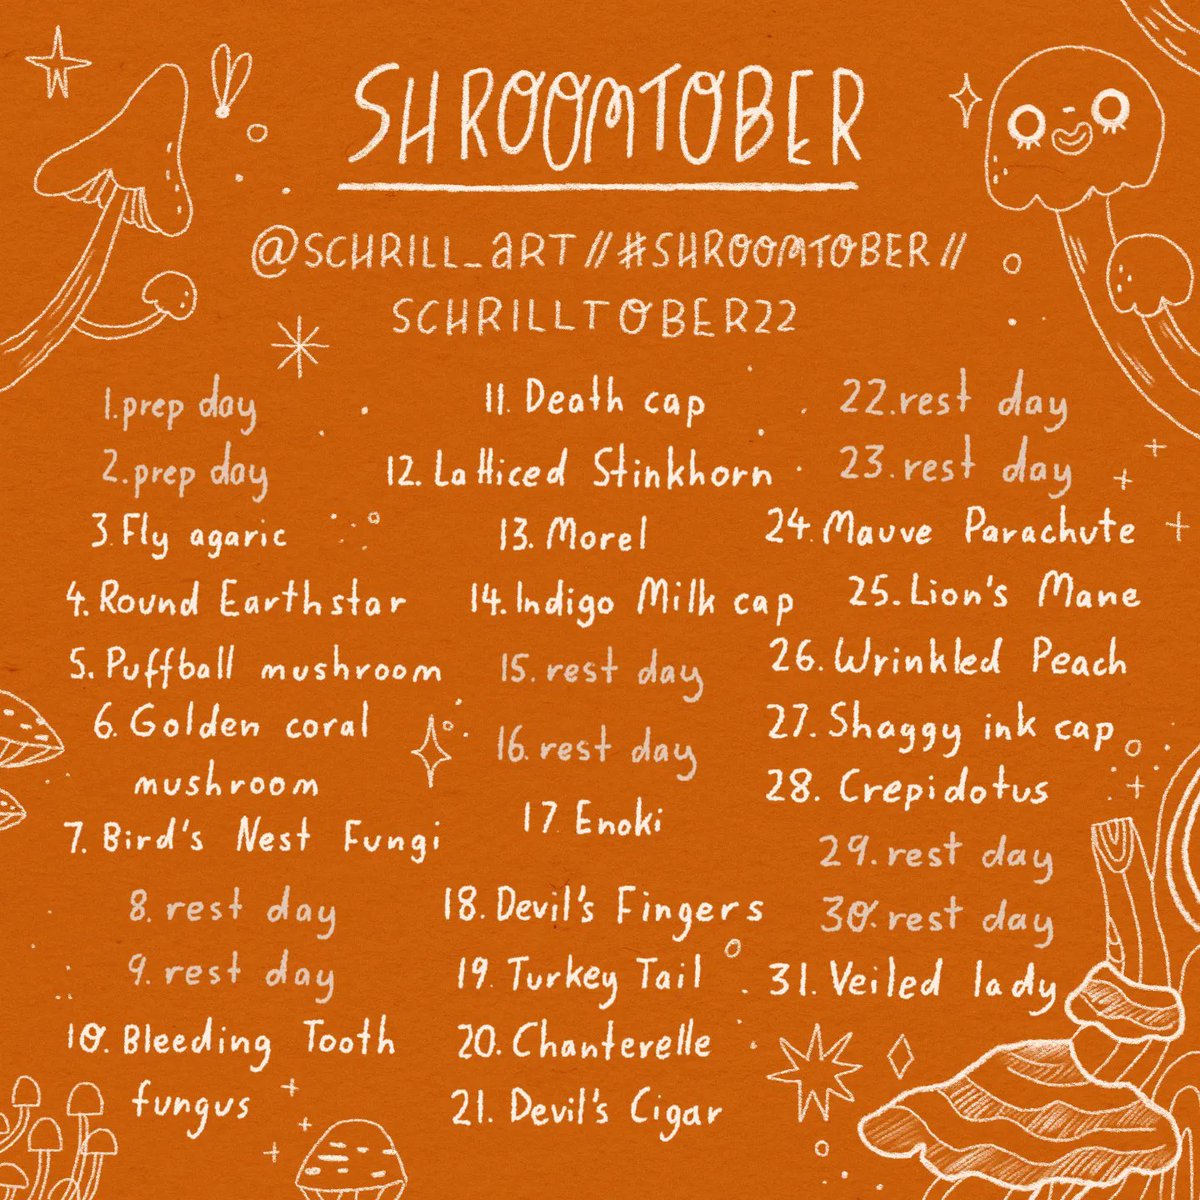 SHROOMTOBER
@SCHRILL_aRT//#SHROOMTOBER//
SCHRILLTOBER22
1.prep day
2.prep day
3.Fly agaric
4.Round Earthstar
5.Puffball mushroom
6.Golden coral
mushroom
7.Bird's Nest Fungi
8.rest day
9.rest day
10.Bleeding Tooth
fungus
11.Death cap
12.Latticed Stinkhorn
13.Morel
14.Indigo Milk cap
15.rest day
16.rest day
17.Enoki
18.Devil's Fingers
19.Turkey Tail
20.Chanterelle
21.Devil's Cigar
22.rest day
23.rest day
24.Mauve Parachute
25.Lion's Mane
26.Wrinkled Peach
27.Shaggy ink cap
28.Crepidotus
29.rest day
30.rest day
31.Veiled lady